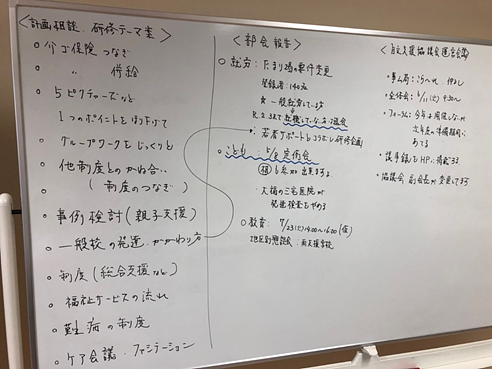 <計画相談 研修テーマ案>
○ 介護保険 つなぎ
○ 〃 併給
○ 5ピクチャーズなど
1つのポイントをほり下げて
グループワークをじっくりと
○ 他制度とのかね合い..
(制度のつなぎ)
○ 事例検討(親子支援)
○ 一般校の発達 かかわり方
○ 制度(総合支援など)
○ 福祉サービスの流れ
○ 難病の制度
○ ケア会議・ファシテーション
<部会報告>
○ 就労: たまり場の要件変更
登録者: 140名
★ 一般就労しています
R.2.3Rで
若者サポートとコラボし研修企画
○ こども: 5/8 定例会
も参加 出来ます。
大橋の三宅医院が
発達検査をやめる
○ 教育: 7/23(土)14:00〜16:00(仮)
地区別懇談会: 南支援学校
<自立支援協議会運営会議>
・事務局:
・全体会: 6/11(土) 9:30〜
・フォーラム: 今年は開催しないが
次年度の準備期間に
あてる
・議事録をHPに掲載する
・協議会 副会長が変更してます